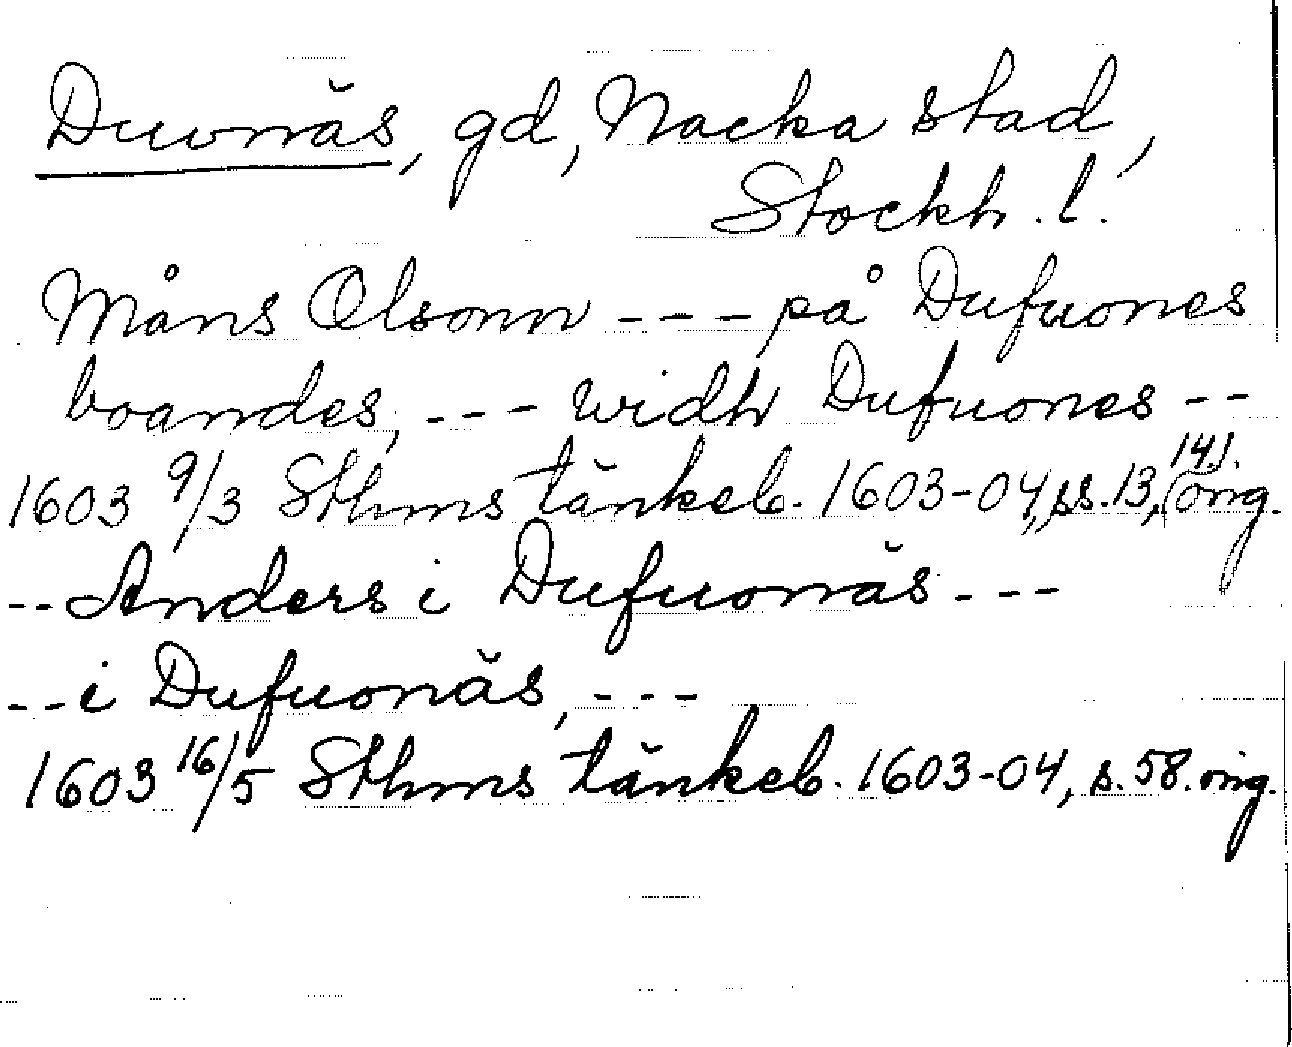 Duvnäs, gd, Nacka stad,
Stockh. l.
Måns Olsonn --- på Dufuones
boandes, --- widh Dufuones --
1603 9/3 Sthms tänkeb. 1603-04, ss. 13, 14). orig.
-- Anders i Dufuonäs ---
-- i Dufuonäs, ---
1603 16/5 Sthms tänkeb. 1603-04, s. 58. orig.